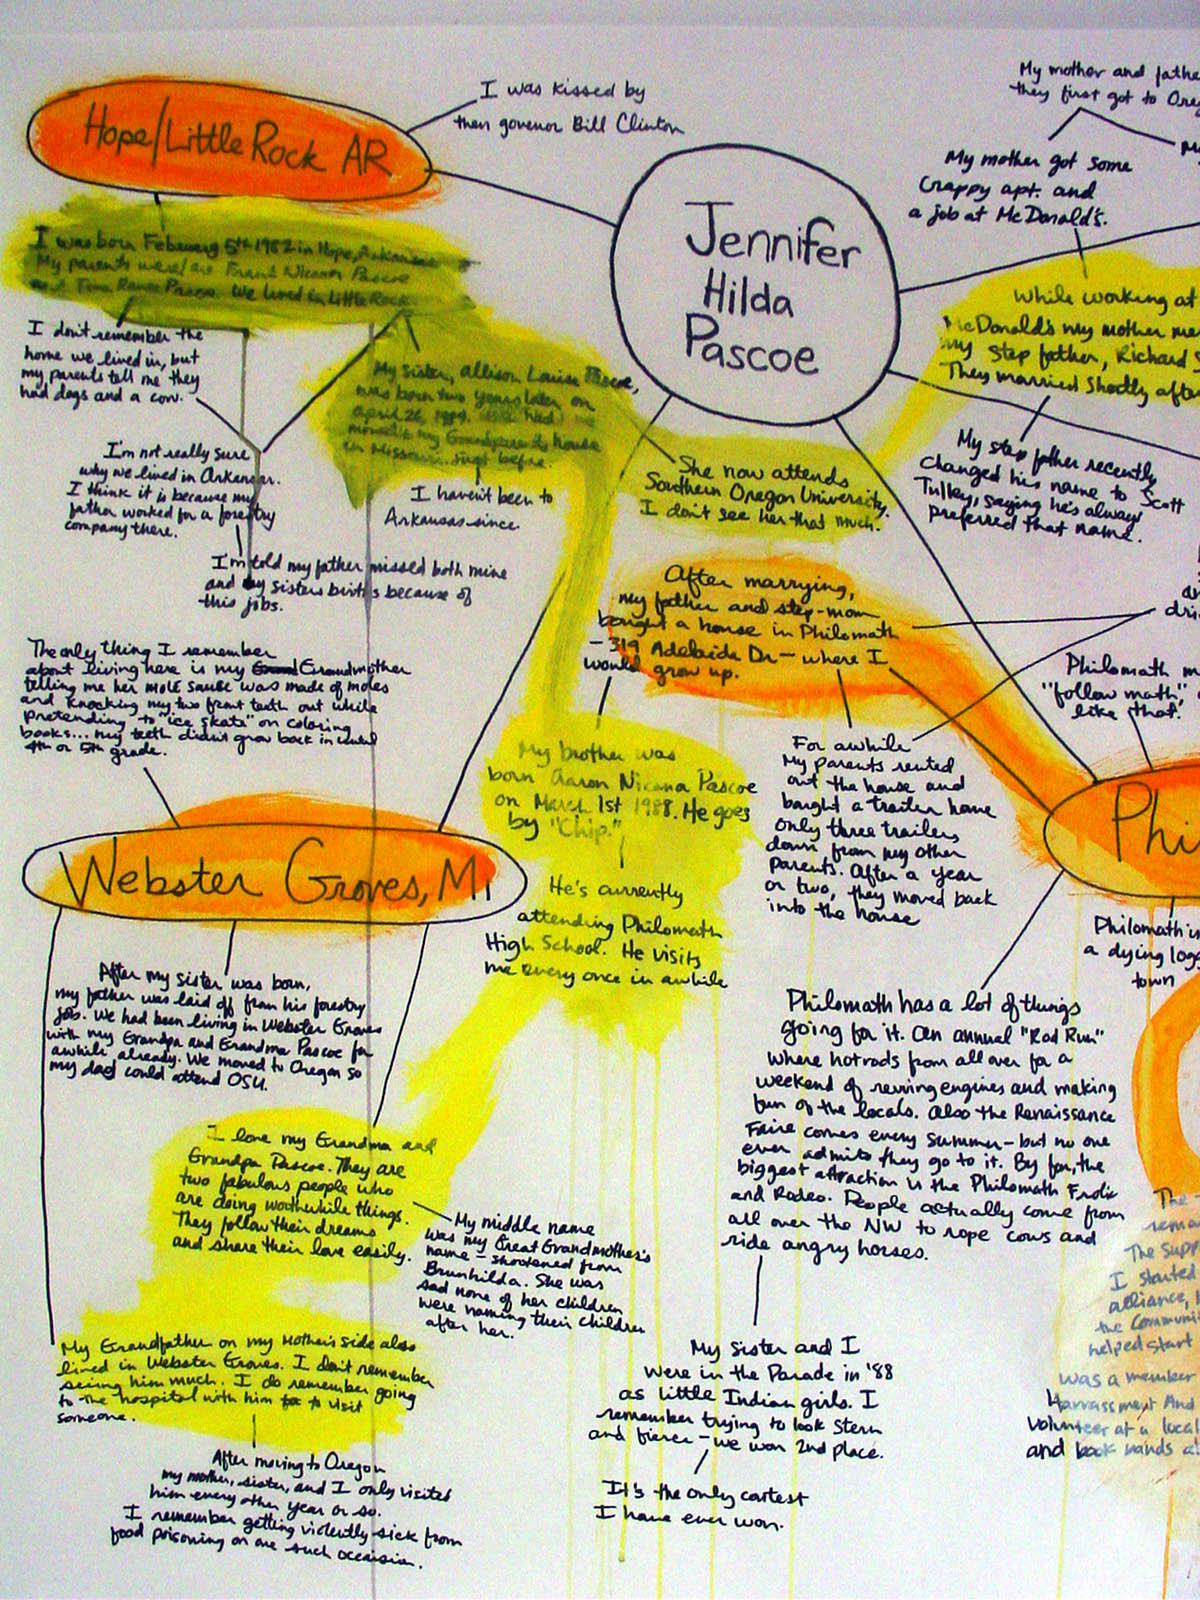 Hope/Little Rock AR
I was kissed by
then governor Bill Clinton
Jennifer
Hilda
Pascoe
My mother and
they first got to
My mother got some
Crappy apt. and
a job at McDonald's.
While working at
McDonald's my mother
my step father, Richard
They married shortly
My step father recently
changed his name to Scott
Tulley, saying he's always
preferred that name.
I was born 5th 1982 in Hope, Arkansas
My parents were/are Frank Nicanor Pascoe
We lived in Little Rock.
I don't remember the
home we lived in, but
my parents tell me they
had dogs and a cow.
My sister, allison Louise Pascoe,
was born two years later on
april 26, had
moved to my Grandparents house
in Missouri just before.
I'm not really sure
why we lived in Arkansas.
I think it is because my
father worked for a forestry
company there.
I haven't been to
Arkansas since.
I'm told my father missed both mine
and my sisters births because of
this jobs.
She now attends
Southern Oregon University.
I don't see her that much.
After marrying,
my father and step-mom
bought a house in Philomath
- 319 Adelaide Dr - where I
would grow up.
The only thing I remember
about living here is my Grandmother
telling me her MOLE sauce was made of moles
and knocking my two front teeth out while
pretending to "ice skate" on coloring
books... my teeth didn't grow back in until
4th or 5th grade.
Webster Groves, Mi
My brother was
born Aaron Nicana Pascoe
on March 1st 1988. He goes
by "Chip."
He's currently
attending Philomath
High School. He visits
me every once in awhile
For awhile
My parents rented
out the house and
bought a trailer home
only three trailers
down from my other
parents. After a year
or two, they moved back
into the house
Philomath
"follow math",
like that.
Phi
Philomath is
a dying
town
After my sister was born,
my father was laid off from his forestry
job. We had been living in Webster Groves
with my Grandpa and Grandma Pascoe for
awhile already. We moved to Oregon so
my dad could attend OSU.
I love my Grandma and
Grandpa Pascoe. They are
two fabulous people who
are doing worthwhile things.
They follow their dreams
and share their love easily.
My middle name
was my Great Grandmother's
name - shortened from
Brunhilda. She was
sad none of her children
were naming their children
after her.
My Grandfather on my Mother's side also
lived in Webster Groves. I don't remember
seeing him much. I do remember going
to the hospital with him to visit
someone.
After moving to Oregon
my mother, sister, and I only visited
him every other year or so.
I remember getting violently sick from
food poisoning on one such occaision.
Philomath has a lot of things
going for it. An annual "Rod Run"
where hotrods from all over for a
weekend of revving engines and making
fun of the locals. Also the Renaissance
Faire comes every summer - but no one
ever admits they go to it. By far, the
biggest attraction is the Philomath Frolic
and Rodeo. People actually come from
all over the NW to rope cows and
ride angry horses.
My sister and I
were in the Parade in '88
as little Indian girls. I
remember trying to look stern
and fierce - we won 2nd place.
It's the only contest
I have ever won.
The
The
I started
alliance,
the
helped start
was a member
Harrassment And
volunteer at a local
and book